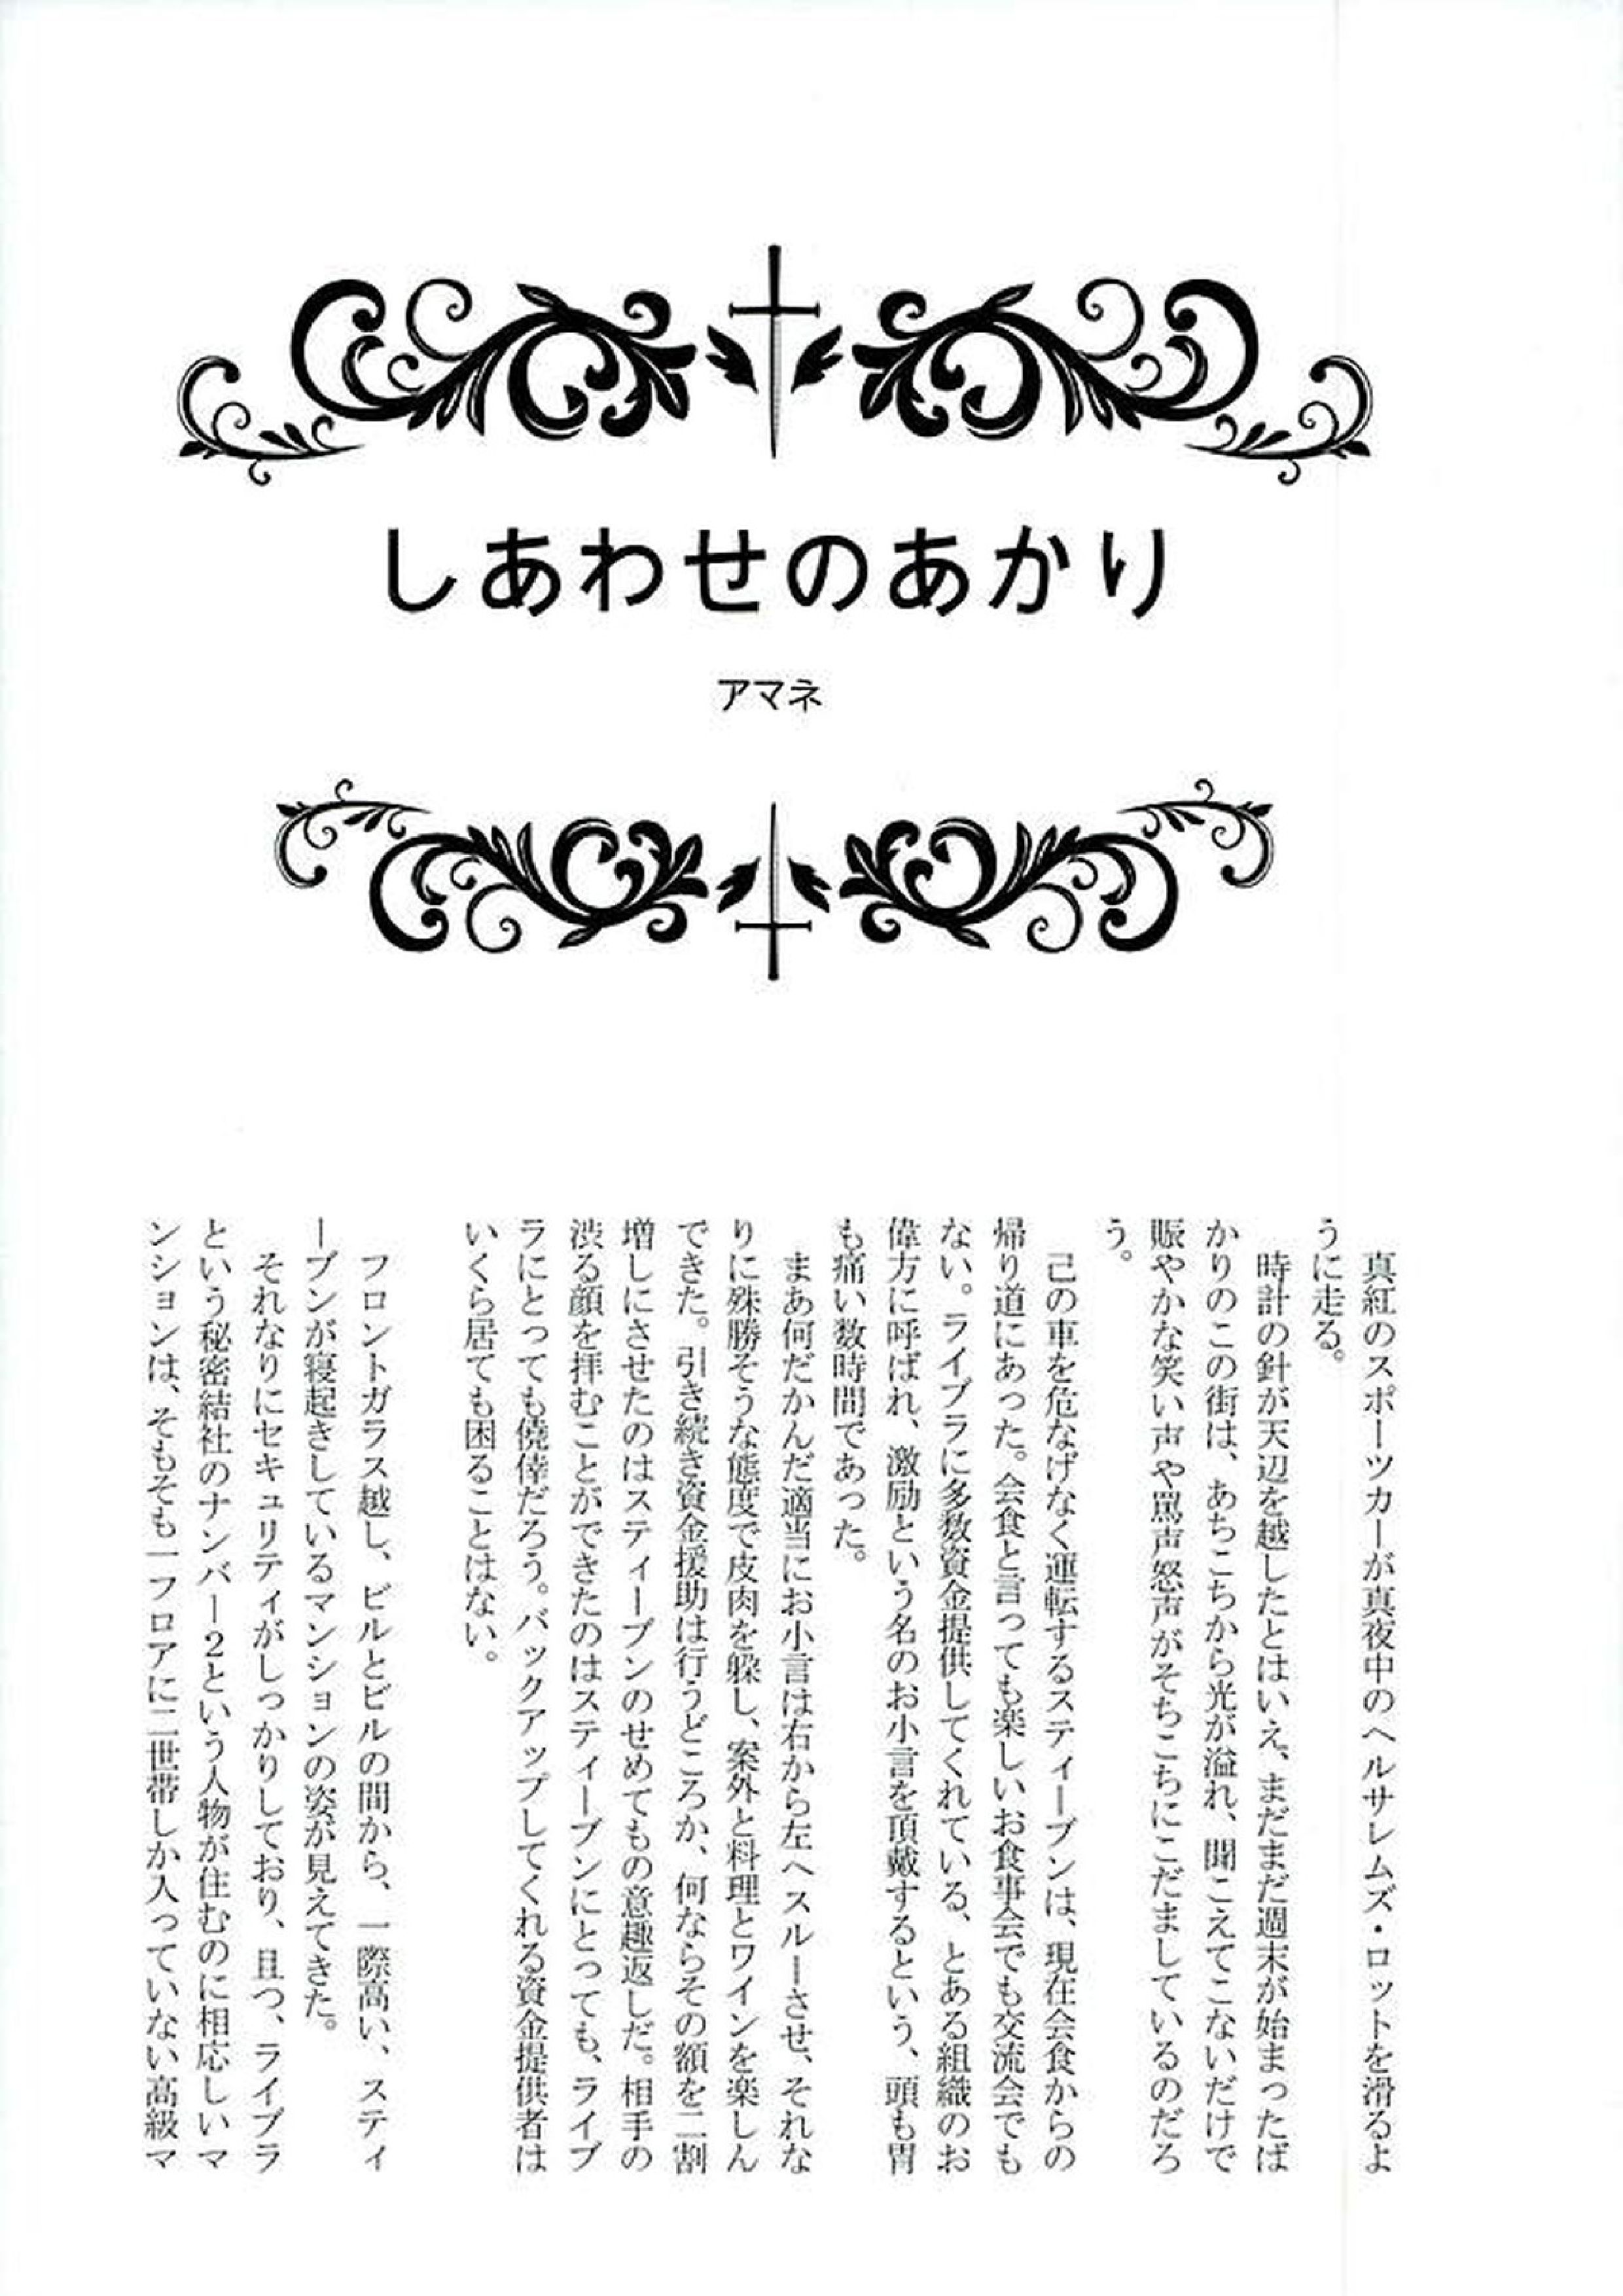 しあわせのあかり
アマネ
　真紅のスポーツカーが真夜中のヘルサレムズ・ロットを滑るよ
うに走る。
　時計の針が天辺を越したとはいえ、まだまだ週末が始まったば
かりのこの街は、あちこちから光が溢れ、聞こえてこないだけで
賑やかな笑い声や罵声怒声がそちこちにこだましているのだろ
う。
　己の車を危なげなく運転するスティーブンは、現在会食からの
帰り道にあった。会食と言っても楽しいお食事会でも交流会でも
ない。ライブラに多数資金提供してくれている、とある組織のお
偉方に呼ばれ、激励という名のお小言を頂戴するという、頭も胃
も痛い数時間であった。
　まあ何だかんだ適当にお小言は右から左へスルーさせ、それな
りに殊勝そうな態度で皮肉を躱し、案外と料理とワインを楽しん
できた。引き続き資金援助は行うどころか、何ならその額を二割
増しにさせたのはスティーブンのせめてもの意趣返しだ。相手の
渋る顔を拝むことができたのはスティーブンにとっても、ライブ
ラにとっても僥倖だろう。バックアップしてくれる資金提供者は
いくら居ても困ることはない。
　フロントガラス越し、ビルとビルの間から、一際高い、スティ
ーブンが寝起きしているマンションの姿が見えてきた。
　それなりにセキュリティがしっかりしており、且つ、ライブラ
という秘密結社のナンバー2という人物が住むのに相応しいマ
ンションは、そもそも一フロアに二世帯しか入っていない高級マ